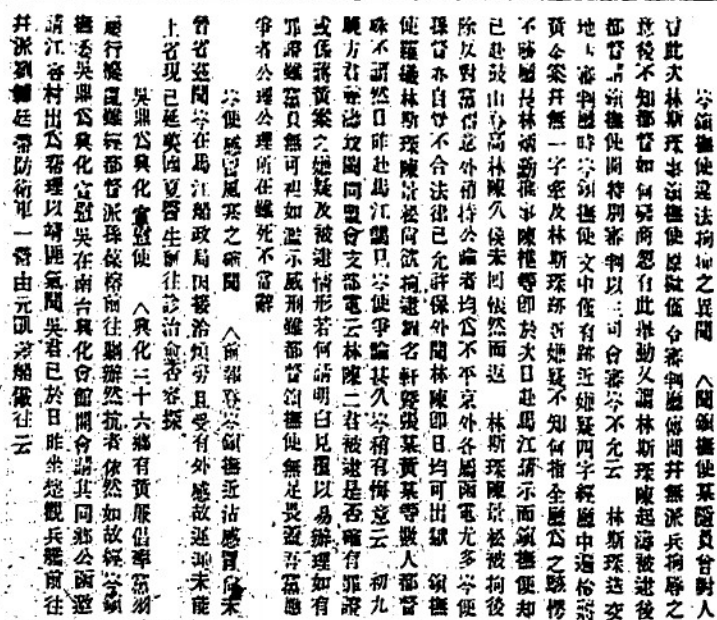 岑鎮撫使違法拘拿之異聞　△聞鎮撫使某隨員曾對人
言此次林斯琛事鎮撫使原擬僅合審判廳傳問并無派兵拘辱之
意後不知都督如何商忽有此舉動又謂林斯琛陳起被逮後
都督請鎮撫使開特別審判以三司會審岑不允云　林斯琛送交
地方審判廳時岑鎮撫使文中僅有跡近嫌疑四字經廳中遍檢
黃金案并無一字惹及林斯琛跡近嫌疑不知何指全廳為之駭愕
不廳長林炳勳推事陳等即於次日赴馬江請示而鎮撫使却
已赴鼓山登高林陳久候未回悵然而返　林斯琛陳景松被拘後
除反對黨得意外稍持公論者均為不平京外各屬函電尤多岑使
孫督亦自知不合法律已允許保外聞林陳即日均可出獄　鎮撫
使羅織林斯琛陳景松尚欲拘逮劉名軒張某黃某等數人都督
殊不謂然日昨赴馬江謁見岑使爭論甚久岑稍有悔意云　初九
同盟會支部電云林陳二君被逮是否確有罪證
或係蔣黃案之嫌疑及被逮情形若何請明白見覆以易辦理如有
罪證雖黨員無可袒如濫示威刑雖都督鎮撫使無足畏我吾黨應
爭者公理公理所在雖死不當辭
岑使感冒風寒之確聞　△前報登岑鎮撫近沾感冒尚未
晉省茲聞岑在馬江船政局因接洽煩勞且受有外感故遲遲未能
上省現已延英國夏醫生前往診治愈否容探
吳鼎為興化宣慰使　△興化三十六鄉有黃濂倡率黨羽
起行擾亂雖經都督派孫葆瑢前往勸辦然抗者依然如故經岑鎮
撫委吳鼎為興化宣慰吳在南台興化會館開會請其同鄉公函邀
請江春村出為幫理以靖匪氛聞吳君已於日昨坐楚觀兵艦前往
并派劉廷帶防衛軍一營由元凱差船儎往云